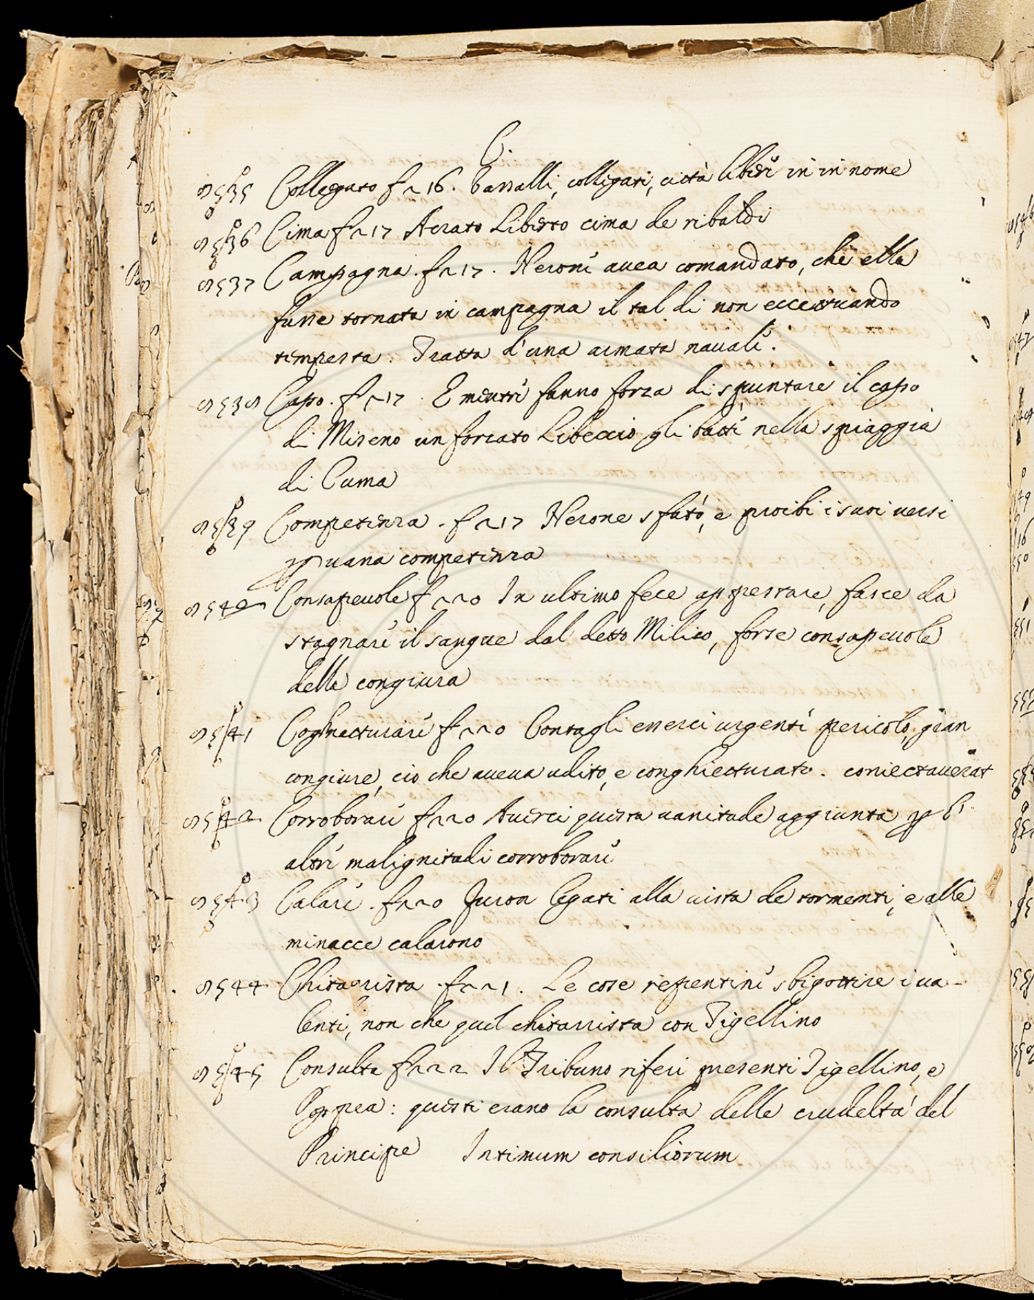 C.
8535 Collegato f~16. Vassalli, collegati, città libere in in nome
8536 Cima f~17 Acrato Liberto cima de ribaldi
8537 Campagna. f~17. Nerone avea comandato, che ella
fusse tornata in campagna il tal di non eccettuando
tempesta. Tratta d'una armata navale.
8538 Capo. f~17. E mentre fanno forza di spuntare il capo
di Miseno un forzato Libeccio gli batte nella spiaggia
di Cuma
8539 Competenza. f~17 Nerone sfatò, e proibì i suoi versi
p vana competenza
8540 Consapevole f~20 In ultimo fece appressare, fasce da
stagnare il sangue dal detto Milico, forse consapevole
della congiura
8541 Coghietturare f~20 Contagli esserci urgenti pericolo, gran
congiure, ciò che aveva udito, e conghietturato. coniectaverat
8542 Corroborare f~20 Averci questa vanitade aggiunta p l'
altre malignitadi corroborare
8543 Calare. f~20 Furon legati alla vista de tormenti, e alle
minacce calarono
8544 Chitarrista. f~21. Le cose repentine sbigottire i va-
lenti, non che quel chitarrista con Tigellino
8545 Consulta f~22 Il Tribuno riferì presenti Tigellino, e
Poppea: questi erano la consulta delle crudeltà del
Principe Intimum consiliorum